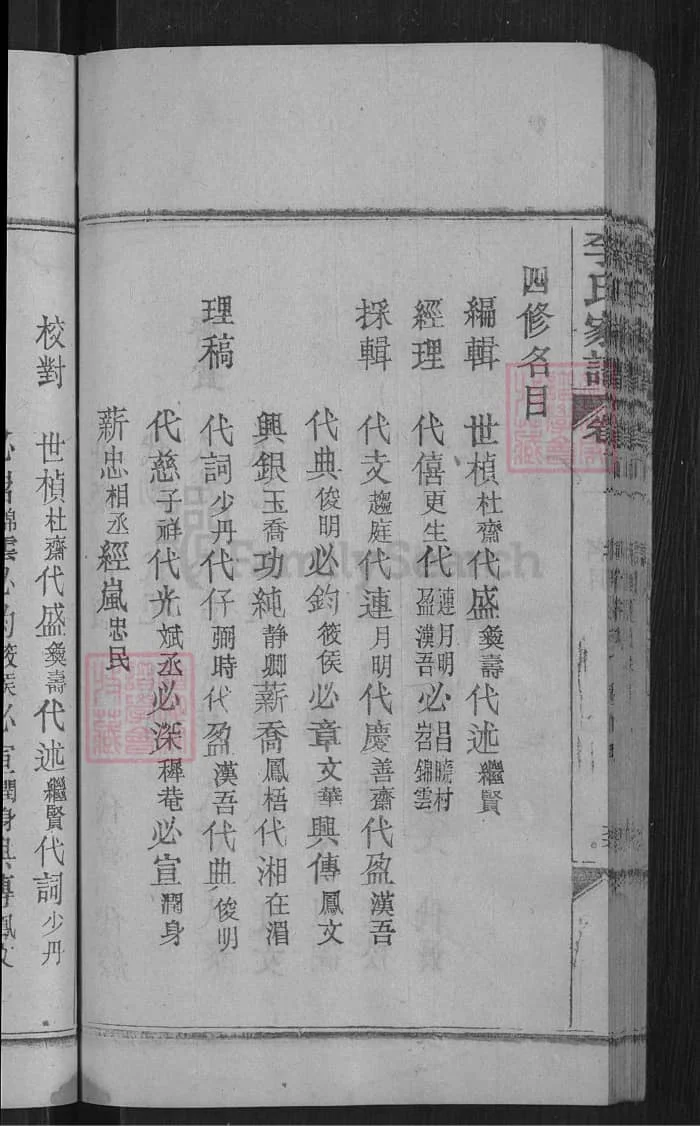 李氏家譜 卷
四修名目
編輯 世楨杜齋代盛奐壽代述繼賢
經理 代僖更生代連月明盈漢吾必昌曉村岩錦雲
採輯 代支趨庭代連月明代慶善齋代盈漢吾
代典俊明必鈞筱侯必章文華興傳鳳文
興銀玉喬功純靜卿薪喬鳳梧代湘在湄
理稿 代詞少丹代仔彌時代盈漢吾代典俊明
代慈子祥代光斌丞必深穉巷必宣潤身
薪忠相丞經嵐忠民
校對 世楨杜齋代盛奐壽代述繼賢代詞少丹
錦雲必鈞筱侯必宣潤身興傳鳳文
FamilySearch